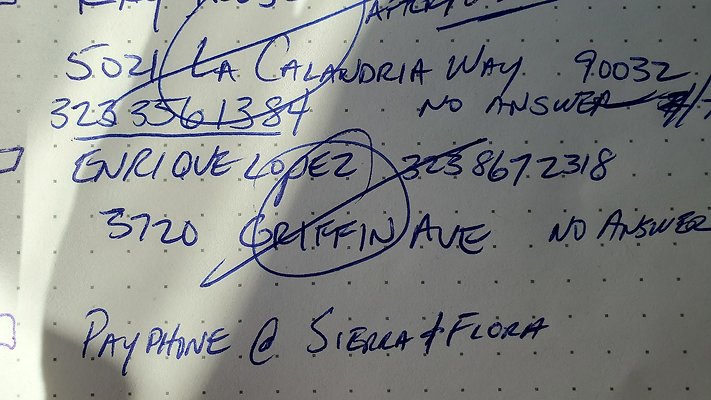 5021 La Calandria Way 90032
323 356 1384 No Answer
Enrique Lopez 323 867 2318
3720 Griffin Ave No Answer
Payphone @ Sierra & Flora